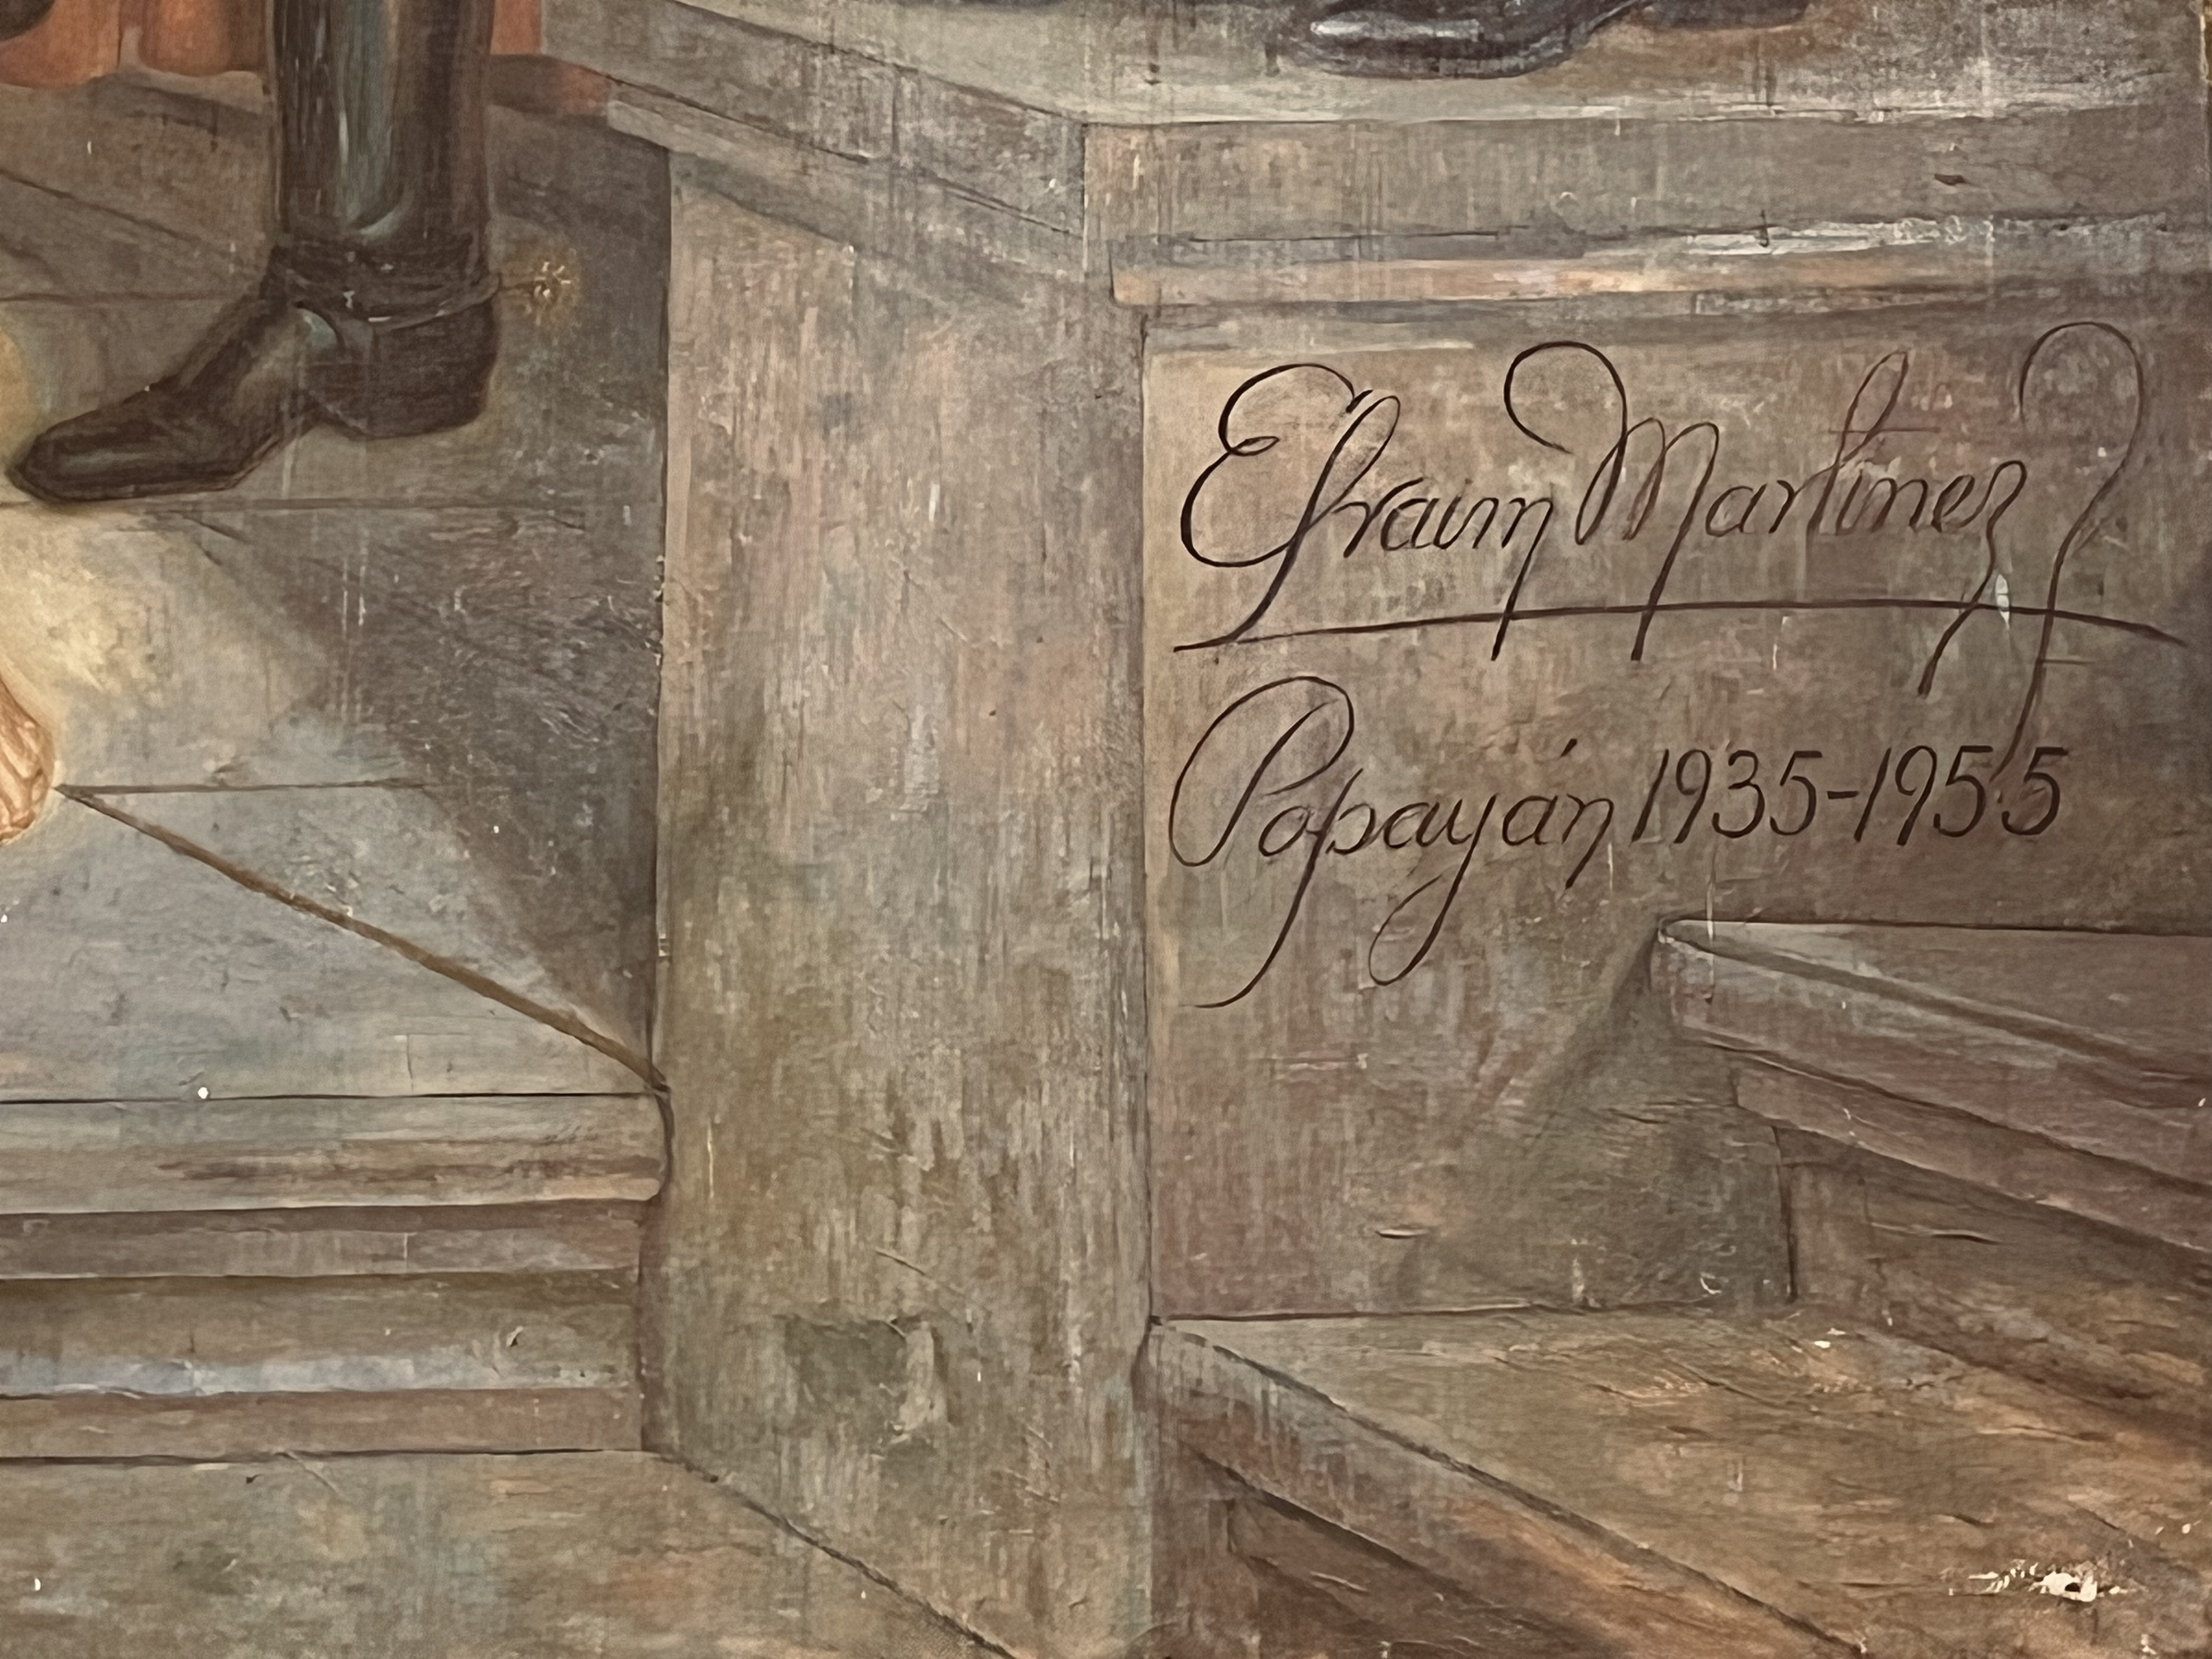 Efraim Martinez
Popayán 1935-1955